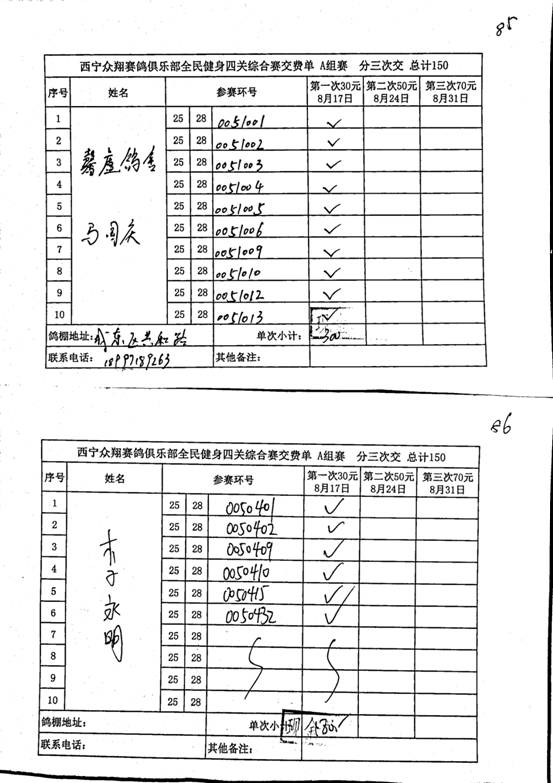 85
西宁众翔赛鸽俱乐部全民健身四关综合赛交费单 A组赛 分三次交 总计150
序号 姓名 参赛环号 第一次30元 8月17日 第二次50元 8月24日 第三次70元 8月31日
1 25 28 0051001 ✓
2 25 28 0051002 ✓
3 馨庐鸽舍 25 28 0051003 ✓
4 25 28 0051004 ✓
5 25 28 0051005 ✓
6 马国庆 25 28 0051006 ✓
7 25 28 0051009 ✓
8 25 28 0051010 ✓
9 25 28 0051012 ✓
10 25 28 0051013 ✓
鸽棚地址: 城东区共和路 单次小计: 300
联系电话: 18997189263 其他备注:
86
西宁众翔赛鸽俱乐部全民健身四关综合赛交费单 A组赛 分三次交 总计150
序号 姓名 参赛环号 第一次30元 8月17日 第二次50元 8月24日 第三次70元 8月31日
1 25 28 0050401 ✓
2 25 28 0050402 ✓
3 25 28 0050409 ✓
4 25 28 0050410 ✓
5 永明 25 28 0050415 ✓
6 25 28 0050432 ✓
7 25 28
8 25 28
9 25 28
10 25 28
鸽棚地址: 单次小计
联系电话: 其他备注: